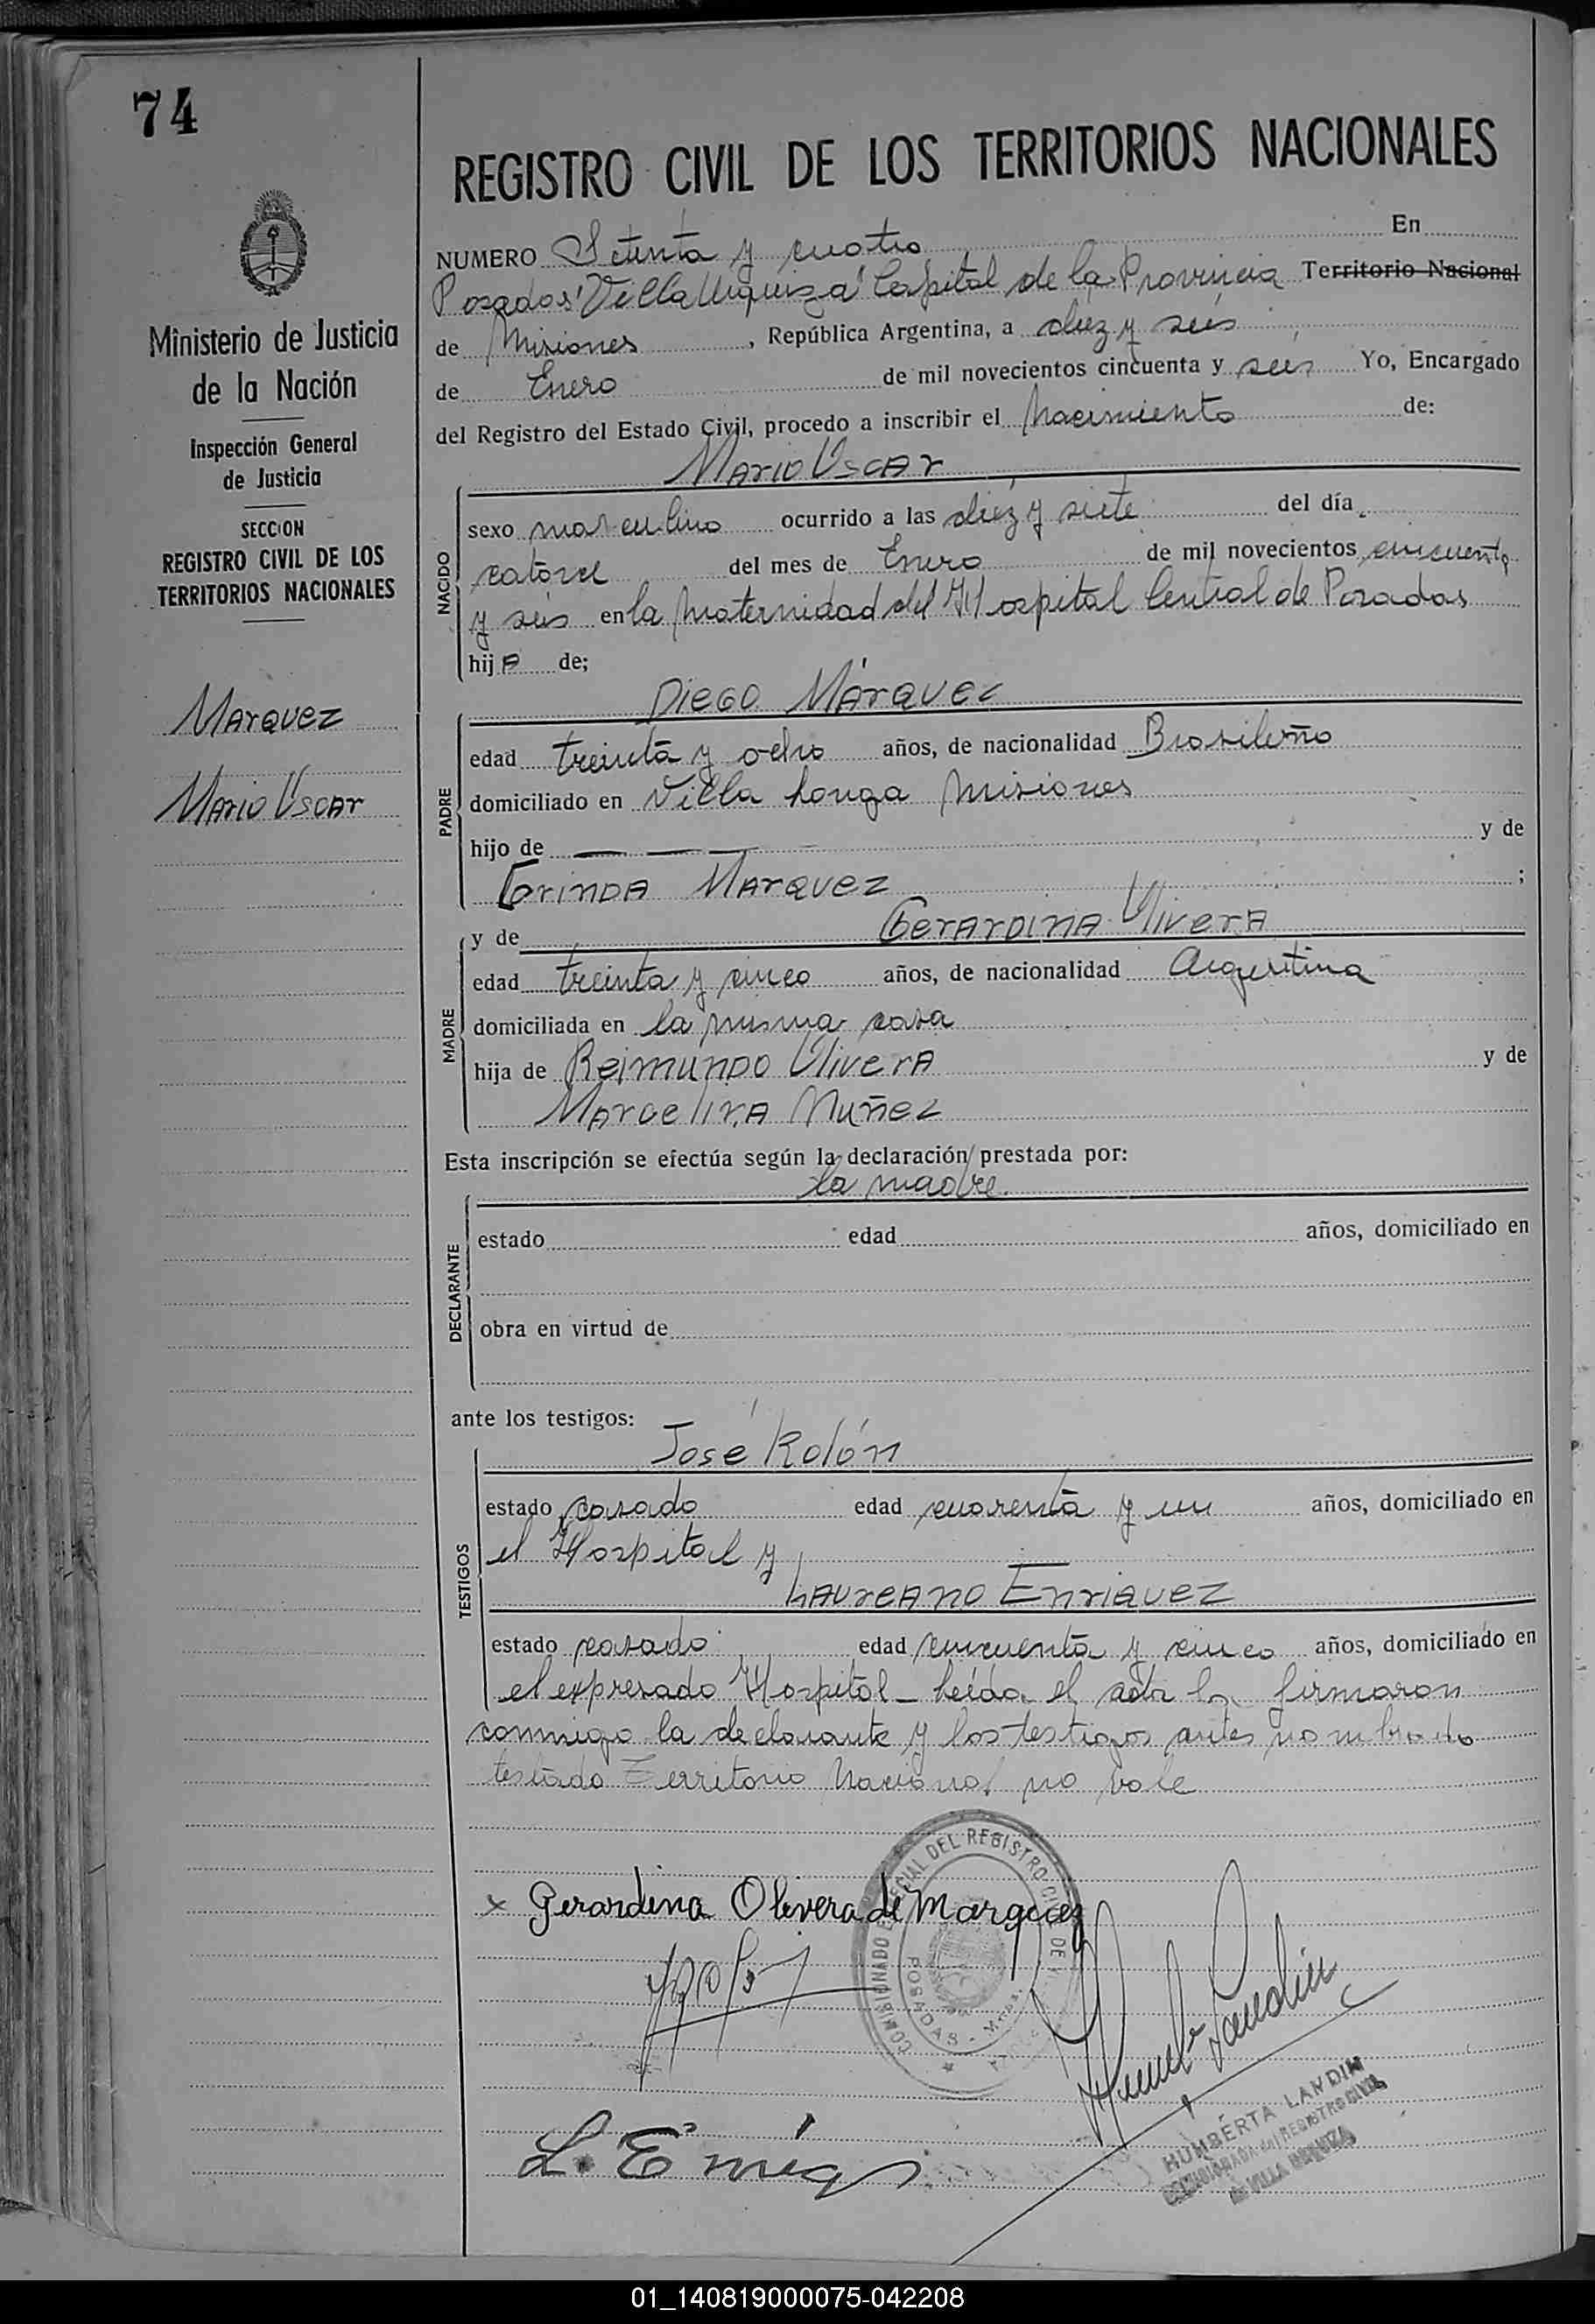 74
REGISTRO CIVIL DE LOS TERRITORIOS NACIONALES
Ministerio de Justicia
de la Nación
Inspección General
de Justicia
SECCION
REGISTRO CIVIL DE LOS
TERRITORIOS NACIONALES
Marquez
Mario Oscar
NUMERO Setenta y cuatro En
Posadas "Villa Urquiza" Capital de la Provincia Territorio Nacional
de Misiones, República Argentina, a diez y seis
de Enero de mil novecientos cincuenta y seis Yo, Encargado
del Registro del Estado Civil, procedo a inscribir el Nacimiento de:
Mario Oscar
NACIDO
sexo masculino ocurrido a las diez y siete del día
catorce del mes de Enero de mil novecientos cincuenta
y seis en la Maternidad del Hospital Central de Posadas
hij de;
Diego Márquez
PADRE
edad treinta y ocho años, de nacionalidad Brasileño
domiciliado en Villa Longa Misiones
hijo de — — — y de
Marquez ;
y de Gerardina Olivera
MADRE
edad treinta y cinco años, de nacionalidad Argentina
domiciliada en la misma casa
hija de Reimundo Olivera y de
Marcelina Nuñez
Esta inscripción se efectúa según la declaración prestada por:
la madre.
DECLARANTE
estado edad años, domiciliado en
obra en virtud de
ante los testigos:
José Rolón
TESTIGOS
estado casado edad cuarenta y un años, domiciliado en
el Hospital y
Laureano Enriquez
estado casado edad cincuenta y cinco años, domiciliado en
el expresado Hospital - Leída el acta la firmaron
conmigo la declarante y los testigos antes nombrado
testado Territorio Nacional no vale
COMISIONADO ESPECIAL DEL REGISTRO CIVIL DE
POSADAS - Mnes.
x Gerardina Olivera de Marquez
L. Enriq
HUMBERTA LANDIN
COMISIONADA del REGISTRO CIVIL
de VILLA URQUIZA
01_140819000075-042208